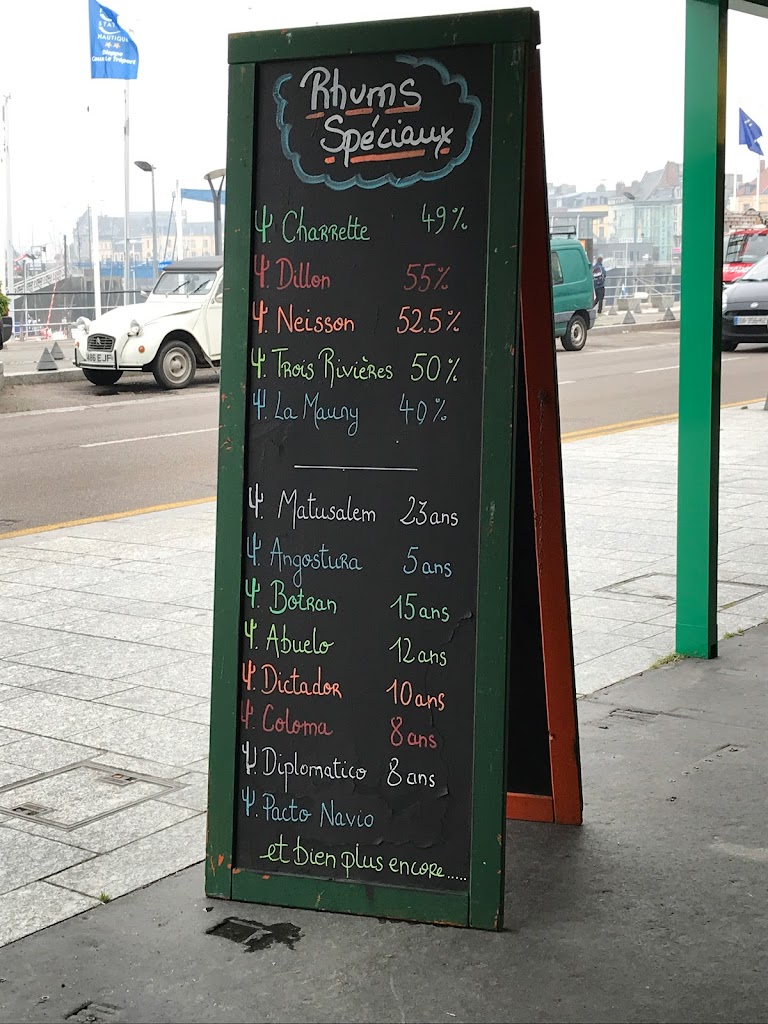 STATION
NAUTIQUE
Dieppe
Rhums
Spéciaux
Ψ. Charrette 49%
Ψ. Dillon 55%
Ψ. Neisson 52.5%
Ψ. Trois Rivières 50%
Ψ. La Mauny 40%
Ψ. Matusalem 23 ans
Ψ. Angostura 5 ans
Ψ. Botran 15 ans
Ψ. Abuelo 12 ans
Ψ. Dictador 10 ans
Ψ. Coloma 8 ans
Ψ. Diplomatico 8 ans
Ψ. Pacto Navio
et bien plus encore.....